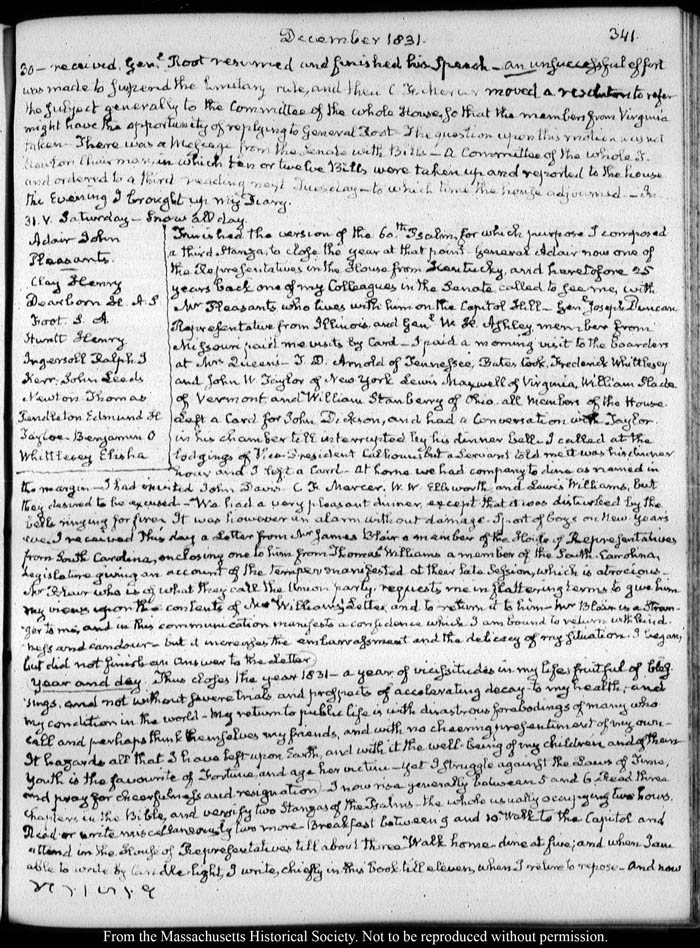 December 1831.
341.
30 – received. Gen.l Root resumed and finished his Speech – an unsuccessful effort
was made to suspend the rule, and then C. F. Mercer moved a resolution to refer
the subject generally to the Committee of the whole House, so that the members from Virginia
might have the opportunity of replying to General Root – The question upon this motion was not
taken – There was a Message from the Senate with Bills – A Committee of the whole T.
Newton Chairman in which ten or twelve Bills were taken up and reported to the house
and ordered to a third reading next Tuesday – to which time the house adjourned – In
the Evening I brought up my Diary.
31. V. Saturday – Snow all day.
Adair John
Pleasants.
Clay Henry
Dearborn H. A. S
Foot. S. A
Huntt Henry
Ingersoll Ralph J
Kerr. John Leeds
Newton Thomas
Pendleton Edmund H
Tayloe. Benjamin O
Whittlesey Elisha
Finished the version of the 60.th Psalm, for which purpose I composed
a third Stanza, to close the year at that point – General Adair now one of
the Representatives in the House from Kentucky, and heretofore 25
years back one of my Colleagues in the Senate called to see me, with
Mr Pleasants who lives with him on the Capitol Hill – Gen.l Joseph Duncan
Representative from Illinois and Gen.l W. H. Ashley, member from
Missouri paid me visits by Card – I paid a morning visit to the boarders
at Mrs Queen's – T. D. Arnold of Tennessee, Bates Cook, Frederick Whittlesey
and John W Taylor of New York Lewis Maxwell of Virginia, William Slade
of Vermont and William Stanberry of Ohio. all Members of the House.
Left a Card for John Dickson, and had a Conversation with Taylor
in his chamber till interrupted by his dinner bell – I called at the
lodgings of Vice-President Calhoun; but a Servant told me it was his dinner
hour and I left a Card – At home we had company to dine as named in
the margin – I had invited John Davis – C. F. Mercer, W. W. Ellsworth and Lewis Williams, but
they desired to be excused – We had a very pleasant dinner, except that it was disturbed by the
bells ringing for fire. It was however an alarm without damage – Sport of boys on New years
eve. I received this day a Letter from Mr James Blair a member of the House of Representatives
from South Carolina, enclosing one to him from Thomas Williams a member of the South-Carolina,
Legislature giving an account of the temper manifested at their late Session, which is atrocious –
Mr Blair who is of what they call the Union party. requests me in flattering terms to give him
my views upon the contents of Mr Williams's Letter, and to return it to him – Mr Blair is a Stran-
ger to me, and in this communication manifests a confidence which I am bound to return with kind-
ness and candour – but it increases the embarrassment and the delicacy of my situation. I began,
but did not finish an answer to the Letter
Year and day. Thus closes the year 1831 – a year of vicissitudes in my life; fruitful of bles-
sings, and not without severe trials and prospects of accelerating decay – to my health, and
my condition in the world – My return to public life is with disastrous forebodings of many who
call and perhaps think themselves my friends, and with no cheering presentiment of my own –
It hazards all that I have left upon Earth, and with it the well-being of my children and of theirs
Youth is the favourite of Fortune, and age her victim – yet I struggle against the Laws of Time,
and pray for cheerfulness and resignation – I now rise generally between 5 and 6. Read three
Chapters in the Bible, and versify two Stanzas of the Psalms – the whole usually occupying two hours.
Read or write miscellaneously two more – Breakfast between 9 and 10 – Walk to the Capitol and
attend in the House of Representatives till about three – Walk home – dine at five; and when I am
able to write by Candle light, I write, chiefly in this book till eleven, when I retire to repose – And now
From the Massachusetts Historical Society. Not to be reproduced without permission.